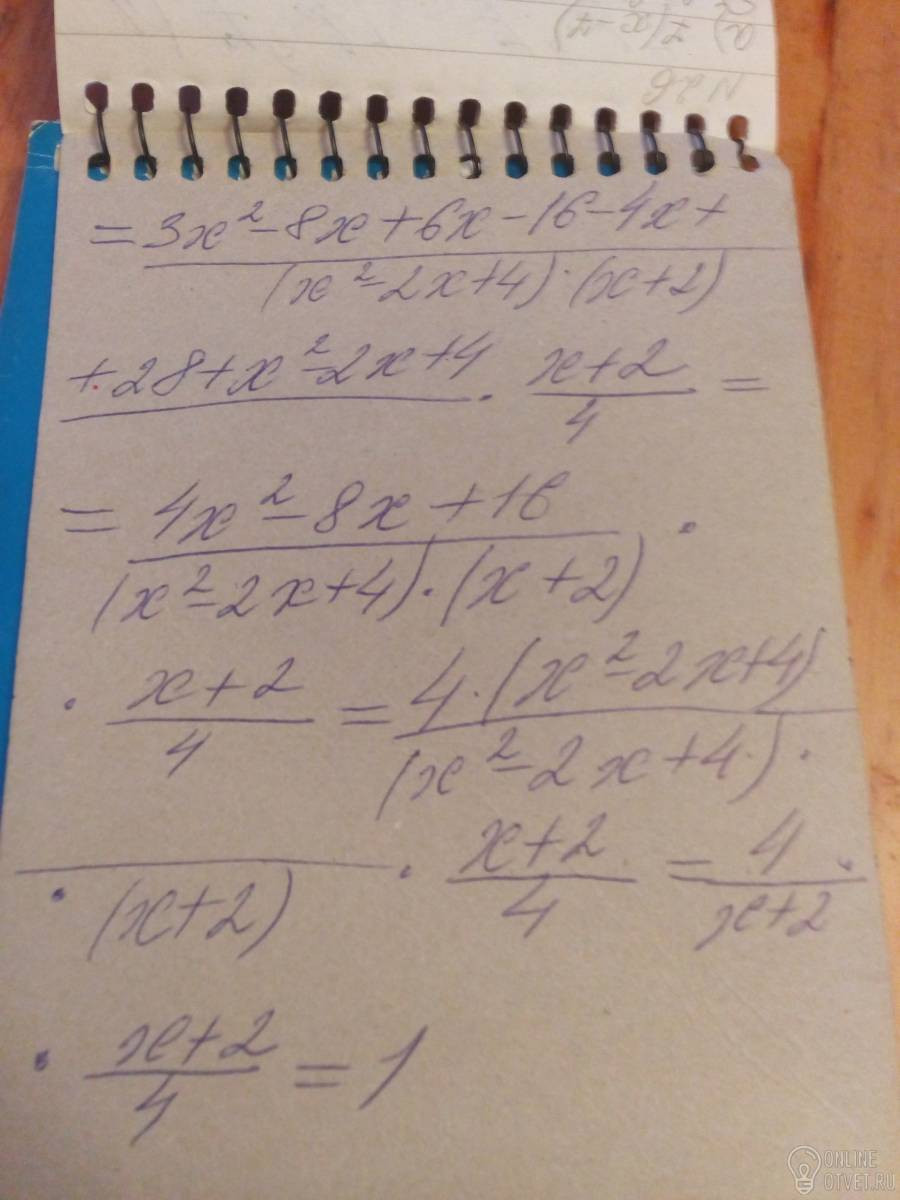 а) 7(x-7)
N 26
= 3x² - 8x + 6x - 16 - 4x +
(x² - 2x + 4) · (x + 2)
+ 28 + x² - 2x + 4 · x + 2 =
4
= 4x² - 8x + 16 ·
(x² - 2x + 4) · (x + 2)
· x + 2 = 4 · (x² - 2x + 4)
4 (x² - 2x + 4) ·
· (x + 2) · x + 2 = 4 ·
4 x + 2
· x + 2 = 1
4
ONLINE
OTVET.RU